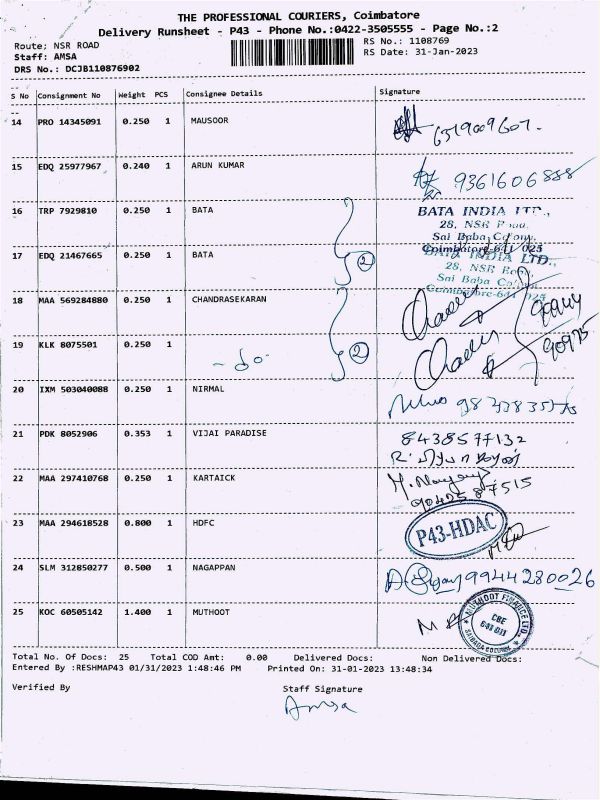 THE PROFESSIONAL COURIERS, Coimbatore
Delivery Runsheet - P43 - Phone No.:0422-3505555 - Page No.:2
Route; NSR ROAD RS No.: 1108769
Staff: AMSA RS Date: 31-Jan-2023
DRS No.: DCJB110876902
S No Consignment No Weight PCS Consignee Details Signature
14 PRO 14345091 0.250 1 MAUSOOR
15 EDQ 25977967 0.240 1 ARUN KUMAR 9361606888
16 TRP 7929810 0.250 1 BATA BATA INDIA LTD.,
28, NSR Road,
Sai Baba Colony,
Coimbatore-641 025
17 EDQ 21467665 0.250 1 BATA 2 BATA INDIA LTD.,
28, NSR Road,
Sai Baba Colony,
Coimbatore-641 025
18 MAA 569284880 0.250 1 CHANDRASEKARAN
19 KLK 8075501 0.250 1 - do - 2
20 IXM 503040088 0.250 1 NIRMAL
21 PDK 8052906 0.353 1 VIJAI PARADISE 8438577132
22 MAA 297410768 0.250 1 KARTAICK
23 MAA 294618528 0.800 1 HDFC P43-HDAC
24 SLM 312850277 0.500 1 NAGAPPAN 9944280026
25 KOC 60505142 1.400 1 MUTHOOT MUTHOOT FINANCE LTD.
CBE
641 011
SAIBABA COLONY
Total No. Of Docs: 25 Total COD Amt: 0.00 Delivered Docs: Non Delivered Docs:
Entered By :RESHMAP43 01/31/2023 1:48:46 PM Printed On: 31-01-2023 13:48:34
Verified By Staff Signature
Amsa